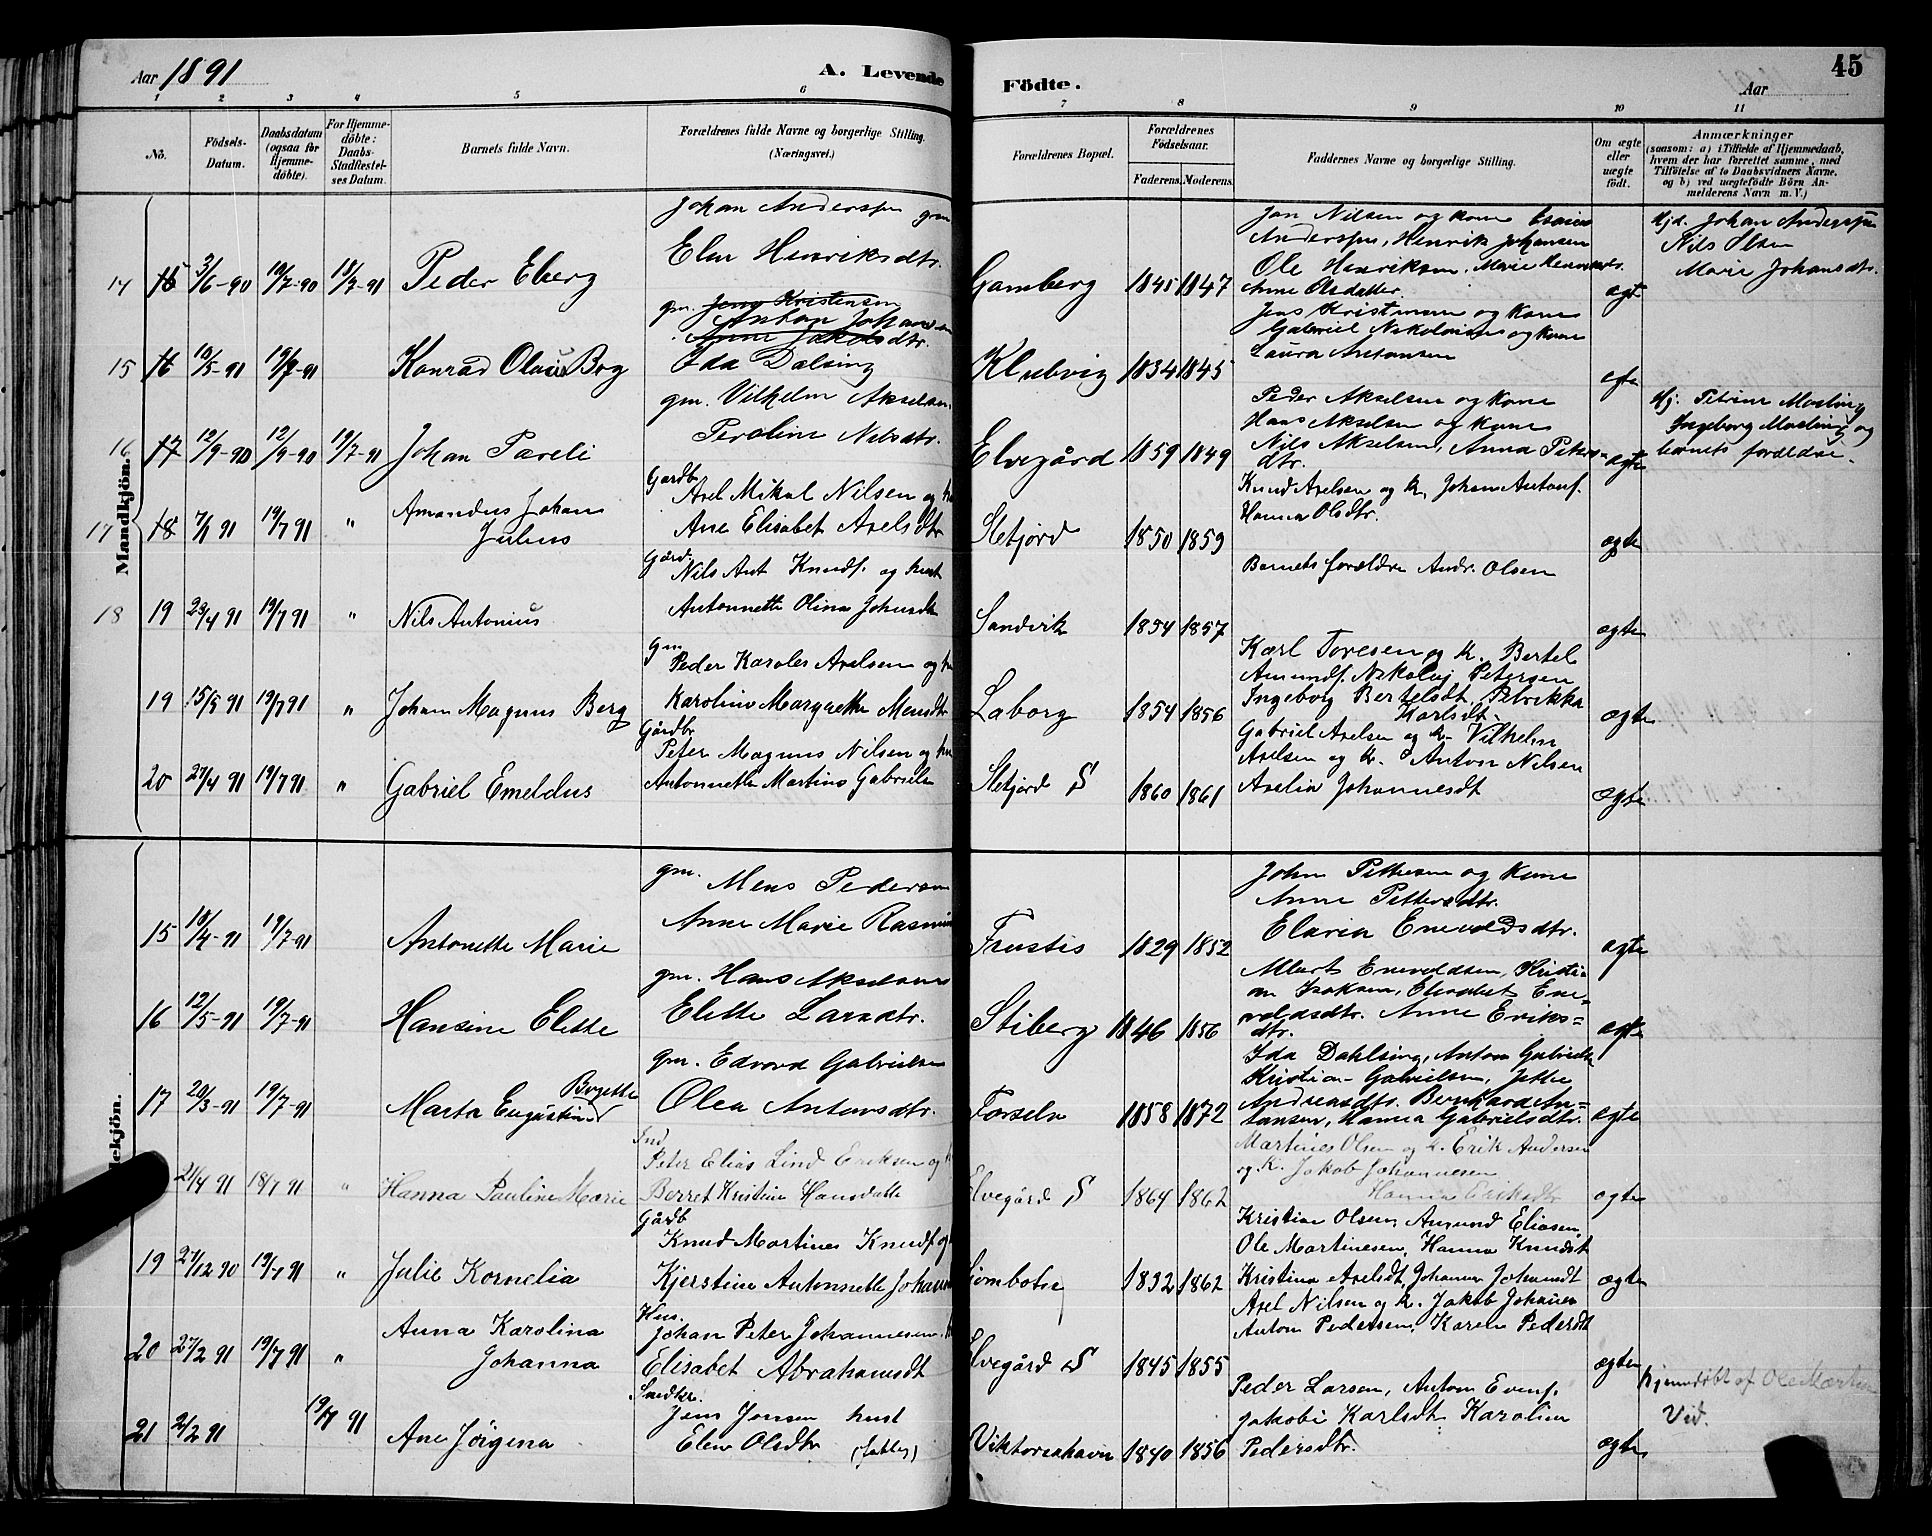 Aar 1891 A. Levende
Födte. Aar 45
1 2 3 4 5 6 7 8 9 10 11
No. Födsels-Datum. Daabsdatum (ogsaa for Hjemme-döbte). For Hjemme-döbte: Daabs-Stadfæstel-ses Datum. Barnets fulde Navn. Forældrenes fulde Navne og borgerlige Stilling. (Næringsvei.) Forældrenes Bopæl. Forældrenes Födselsaar. Faderens. Moderens. Faddernes Navne og borgerlige Stilling. Om ægte eller uægte födt. Anmærkninger (saasom: a) i Tilfælde af Hjemmedaab, hvem der har forrettet samme, med Tilföielse af to Daabsvidners Navne, og b) ved uægtefödte Börn An-melderens Navn m. V.)
Mandkjön.
Johan Andersen gm
Jon Nilsen og kone Esaias
Hjd. Johan Andersen
Elen Henriksdtr.
Andersen, Henrik Johansen
Nils Olsen
14 15 3/6-90 19/7-90 18/7-91 Peder Eberg
Gamberg 1845 1847
Ole Henriksen, Marie Henriksdtr.
Anne Olsdatter.
ægte
Marie Johansdtr.
gm. Jens Kristensen
Anton Johansen
Anne Jakobsdtr.
Jens Kristensen og kone
Gabriel Nikolaisen og kone
15 16 10/5-91 19/7-91 Konrad Olaus Bog
Ida Dalsing
Klubvig 1834 1845
Laura Antonsen
ægte
gm. Vilhelm Akselsen
Peder Akselsen og kone
Hj. Petrine Mosling
Peroline Nilsdtr.
Hans Akselsen og kone
Ingeborg Mosling og
16 17 12/9-90 12/9-90 19/7-91 Johan Pareli
Elvegård 1859 1849
Nils Akselsen, Anna Peters-
dtr.
ægte
barnets forældre.
Gardb
Axel Mikal Nilsen og
Knud Axelsen og k, Johan Antonf.
17 18 7/1 91 19/7 91 " Amandus Johan
Julius
Ane Elisabet Axelsdtr
Sletjord 1850 1859
Hanna Olsdtr.
ægte
Gård.
Nils Ant Knudf. og hust
Barnets forældre Andr. Olsen
18 19 23/4 91 19/7 91 " Nils Antonius
Antonnette Olina Johnsdtr
Sandvik 1854 1857
ægte
gm
Peder Karoles Axelsen og
Karl Toresen og k. Bertel
Amundf. Nikolaj Petersen
19 15/5 91 19/7 91 " Johan Magnus Berg
Karoline Margrethe Mensdtr
Laborg 1854 1856
Ingeborg Bertelsdt, Petrikka
Karlsdt.
ægte
Gårdbr
Peter Magnus Nilsen og
Gabriel Axelsen og k. Vilhelm
Axelsen og k. Anton Nilsen
20 27/4 91 19/7 91 " Gabriel Emeldus
Antonnette Martine Gabriels
Sletjord S 1860 1861
Axelia Johannesdt
ægte
dekjön.
gm. Mens Pedersen
John Pettersen og kone
Anne Pettersdtr.
15 18/4-91 19/7-91 Antonette Marie
Anne Marie Rasmus
Frustis 1829 1852
Elaria Enevoldsdtr.
ægte
gm. Hans Akselsen
Albert Enevoldsen, Kristi-
an Isaksen, Elisabet Ene=
16 12/5-91 19/7-91 Hansine Elette
Elette Larsdtr.
Stiberg 1846 1856
voldsdtr. Anne Eriks=
dtr.
ægte
gm. Edvard Gabrielsen
Ida Dahlsing, Anton Gabrielsen
Kristian Gabrielsen, Jette
17 20/3-91 19/7-91 Marta Eugustine Birgette
Olea Antonsdtr.
Forseln 1858 1872
Andreasdtr. Bernhard An=
tonsen, Hanna Gabrielsdtr.
ægte
Ind
Peter Elias Lind Eriksen og
Martines Olsen og k. Erik Andersen
21/4 91 18/7 91 " Hanna Pauline Marie
Berret Kristine Hansdatte
Elvegård S 1864 1862
og k. Jakob Johannesen
Hanna Eriksdtr
ægte
Gårdb
Knud Martines Knudf. og
Kristian Olsen, Amund Eliasen
Ole Martinesen, Hanna Knudsdt
19 27/12 90 19/7 91 " Julie Kornelia
Kjerstine Antonnette Johans
Sjombotn 1832 1862
Kristina Axelsdt, Johanna Johansdt
ægte
Hus.
Johan Peter Johannesen
Axel Nilsen og k. Jakob Johansen
20 27/2 91 19/7 91 " Anna Karolina
Johanna
Elisabet Abrahamsdt
Elvegård S 1845 1855
Anton Pedersen, Karen Pedersdt
ægte
Smedkr.
Jens Jonsen hust
Peder Larsen, Anton Evenf.
hjemdöbt af Ole Martin
21 21/2 91 19/7 91 Ane Jörgena
Elen Olsdtr
Viktoriahavn 1840 1856
Jakobi Karlsdt Karolina
Pedersdtr.
ægte
Vid.